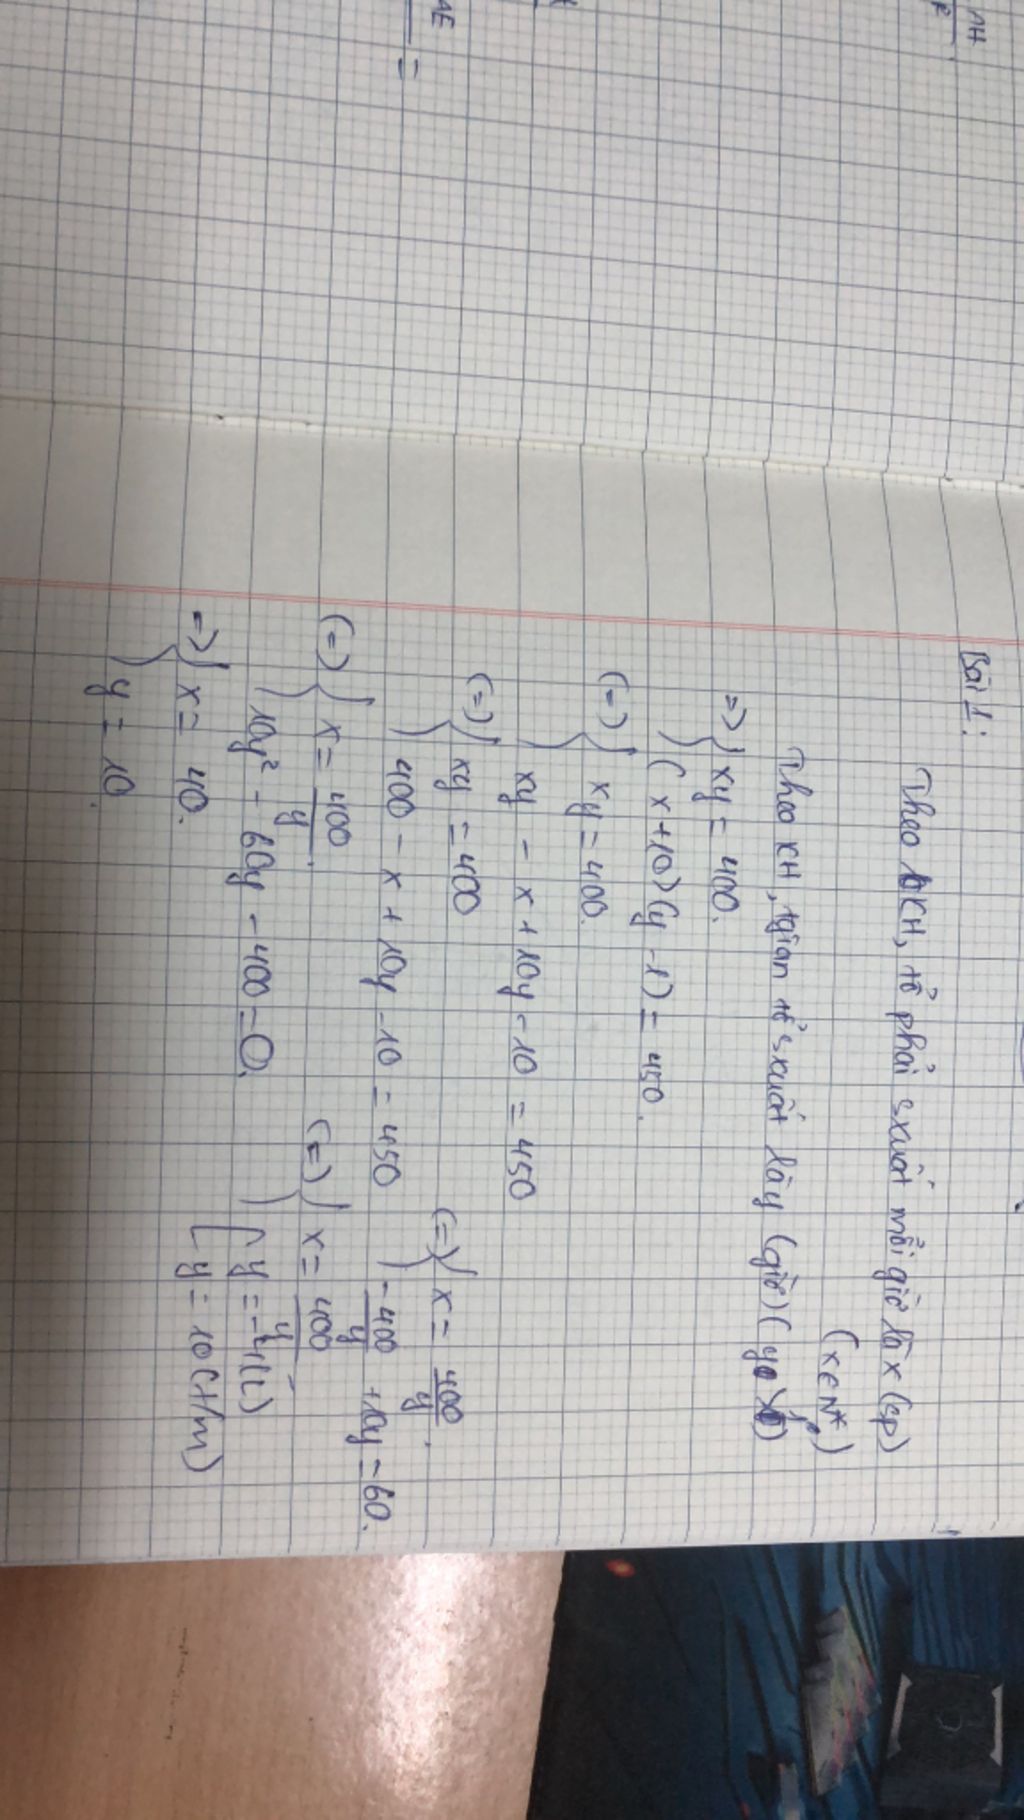 AH
AE
=
Bài 1:
Theo KH, tổ phải sxuất mỗi giờ là x (sp)
(x ∈ N*)
Theo KH, tgian tổ sxuất là y (giờ) (y
=> { xy = 400.
{ (x+10)(y-1) = 450.
(=) { xy = 400.
{ xy - x + 10y - 10 = 450
(=) { xy = 400
{ 400 - x + 10y - 10 = 450
(=) { x = 400/y.
{ -400/y + 10y = 60.
(=) { x = 400/y.
{ 10y² - 60y - 400 = 0.
(=) { x = 400/y
{ [ y = -4 (L)
[ y = 10 (t/m)
=> { x = 40.
{ y = 10.